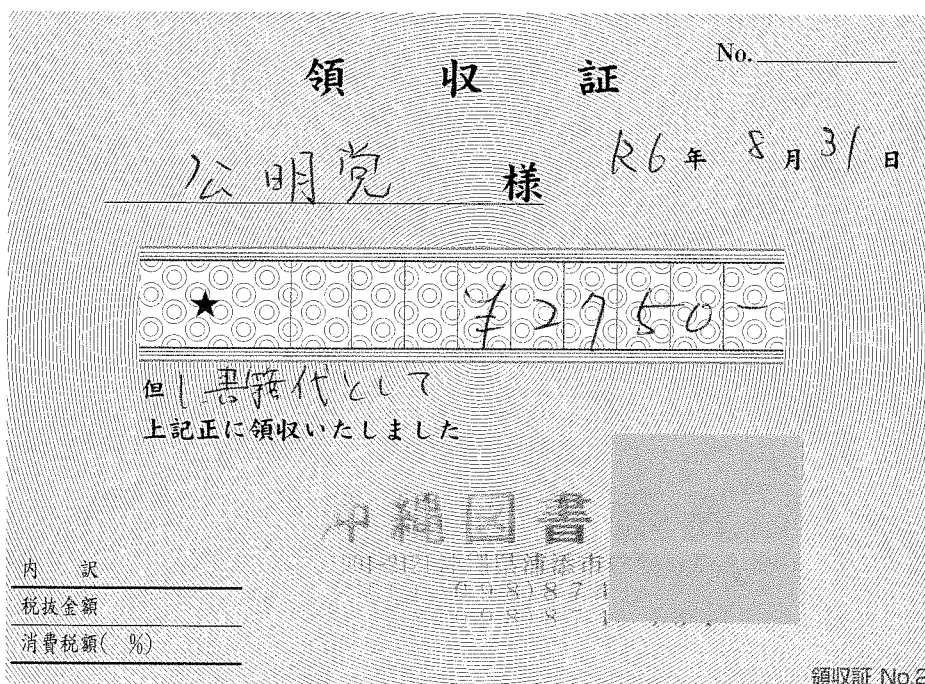 No.
領収証
公明党 様 R6年 8月 31日
★ ¥2750-
但し書籍代として
上記正に領収いたしました
沖縄図書
浦添市
内訳
税抜金額
消費税額( %)
領収証 No.2